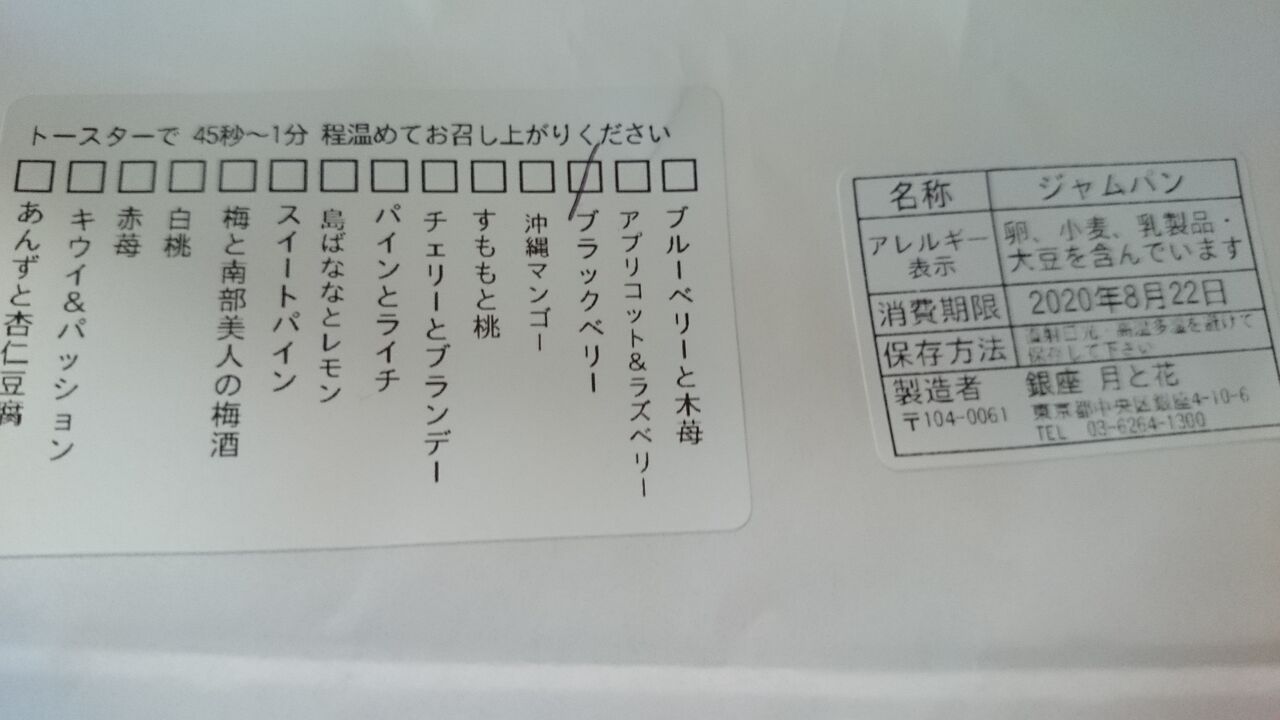 トースターで 45秒～1分 程温めてお召し上がりください
ブルーベリーと木苺
アプリコット&ラズベリー
ブラックベリー
沖縄マンゴー
すももと桃
チェリーとブランデー
パインとライチ
島ばななとレモン
スイートパイン
梅と南部美人の梅酒
白桃
赤苺
キウイ&パッション
あんずと杏仁豆腐
名称 ジャムパン
アレルギー表示 卵、小麦、乳製品・
大豆を含んでいます
消費期限 2020年8月22日
保存方法 直射日光・高温多湿を避けて
保存して下さい
製造者 銀座 月と花
〒104-0061 東京都中央区銀座4-10-6
TEL 03-6264-1300